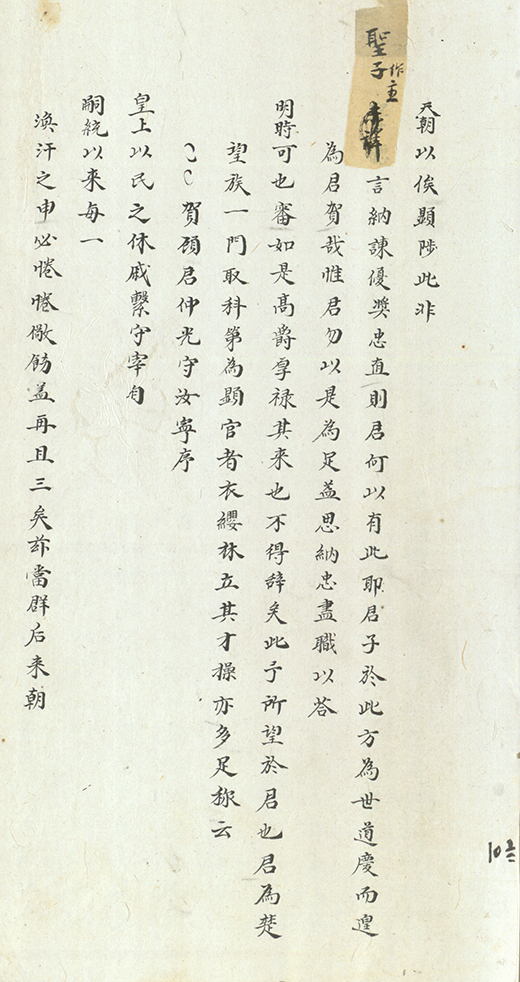 天朝以俟顯陟此非
聖子作主
言納諫優奬忠直則君何以有此耶君子於此方為世道慶而遑
為君賀哉惟君勿以是為足益思納忠盡職以荅
明時可也審如是髙爵厚禄其来也不得辞矣此予所望於君也君為楚
望族一門取科第為顯官者衣纓林立其才操亦多足称云
賀顔君仲光守汝寧序
皇上以民之休戚繫守宰自
嗣統以来每一
渙汗之申必惓惓儆飭盖再且三矣茲當群后来朝